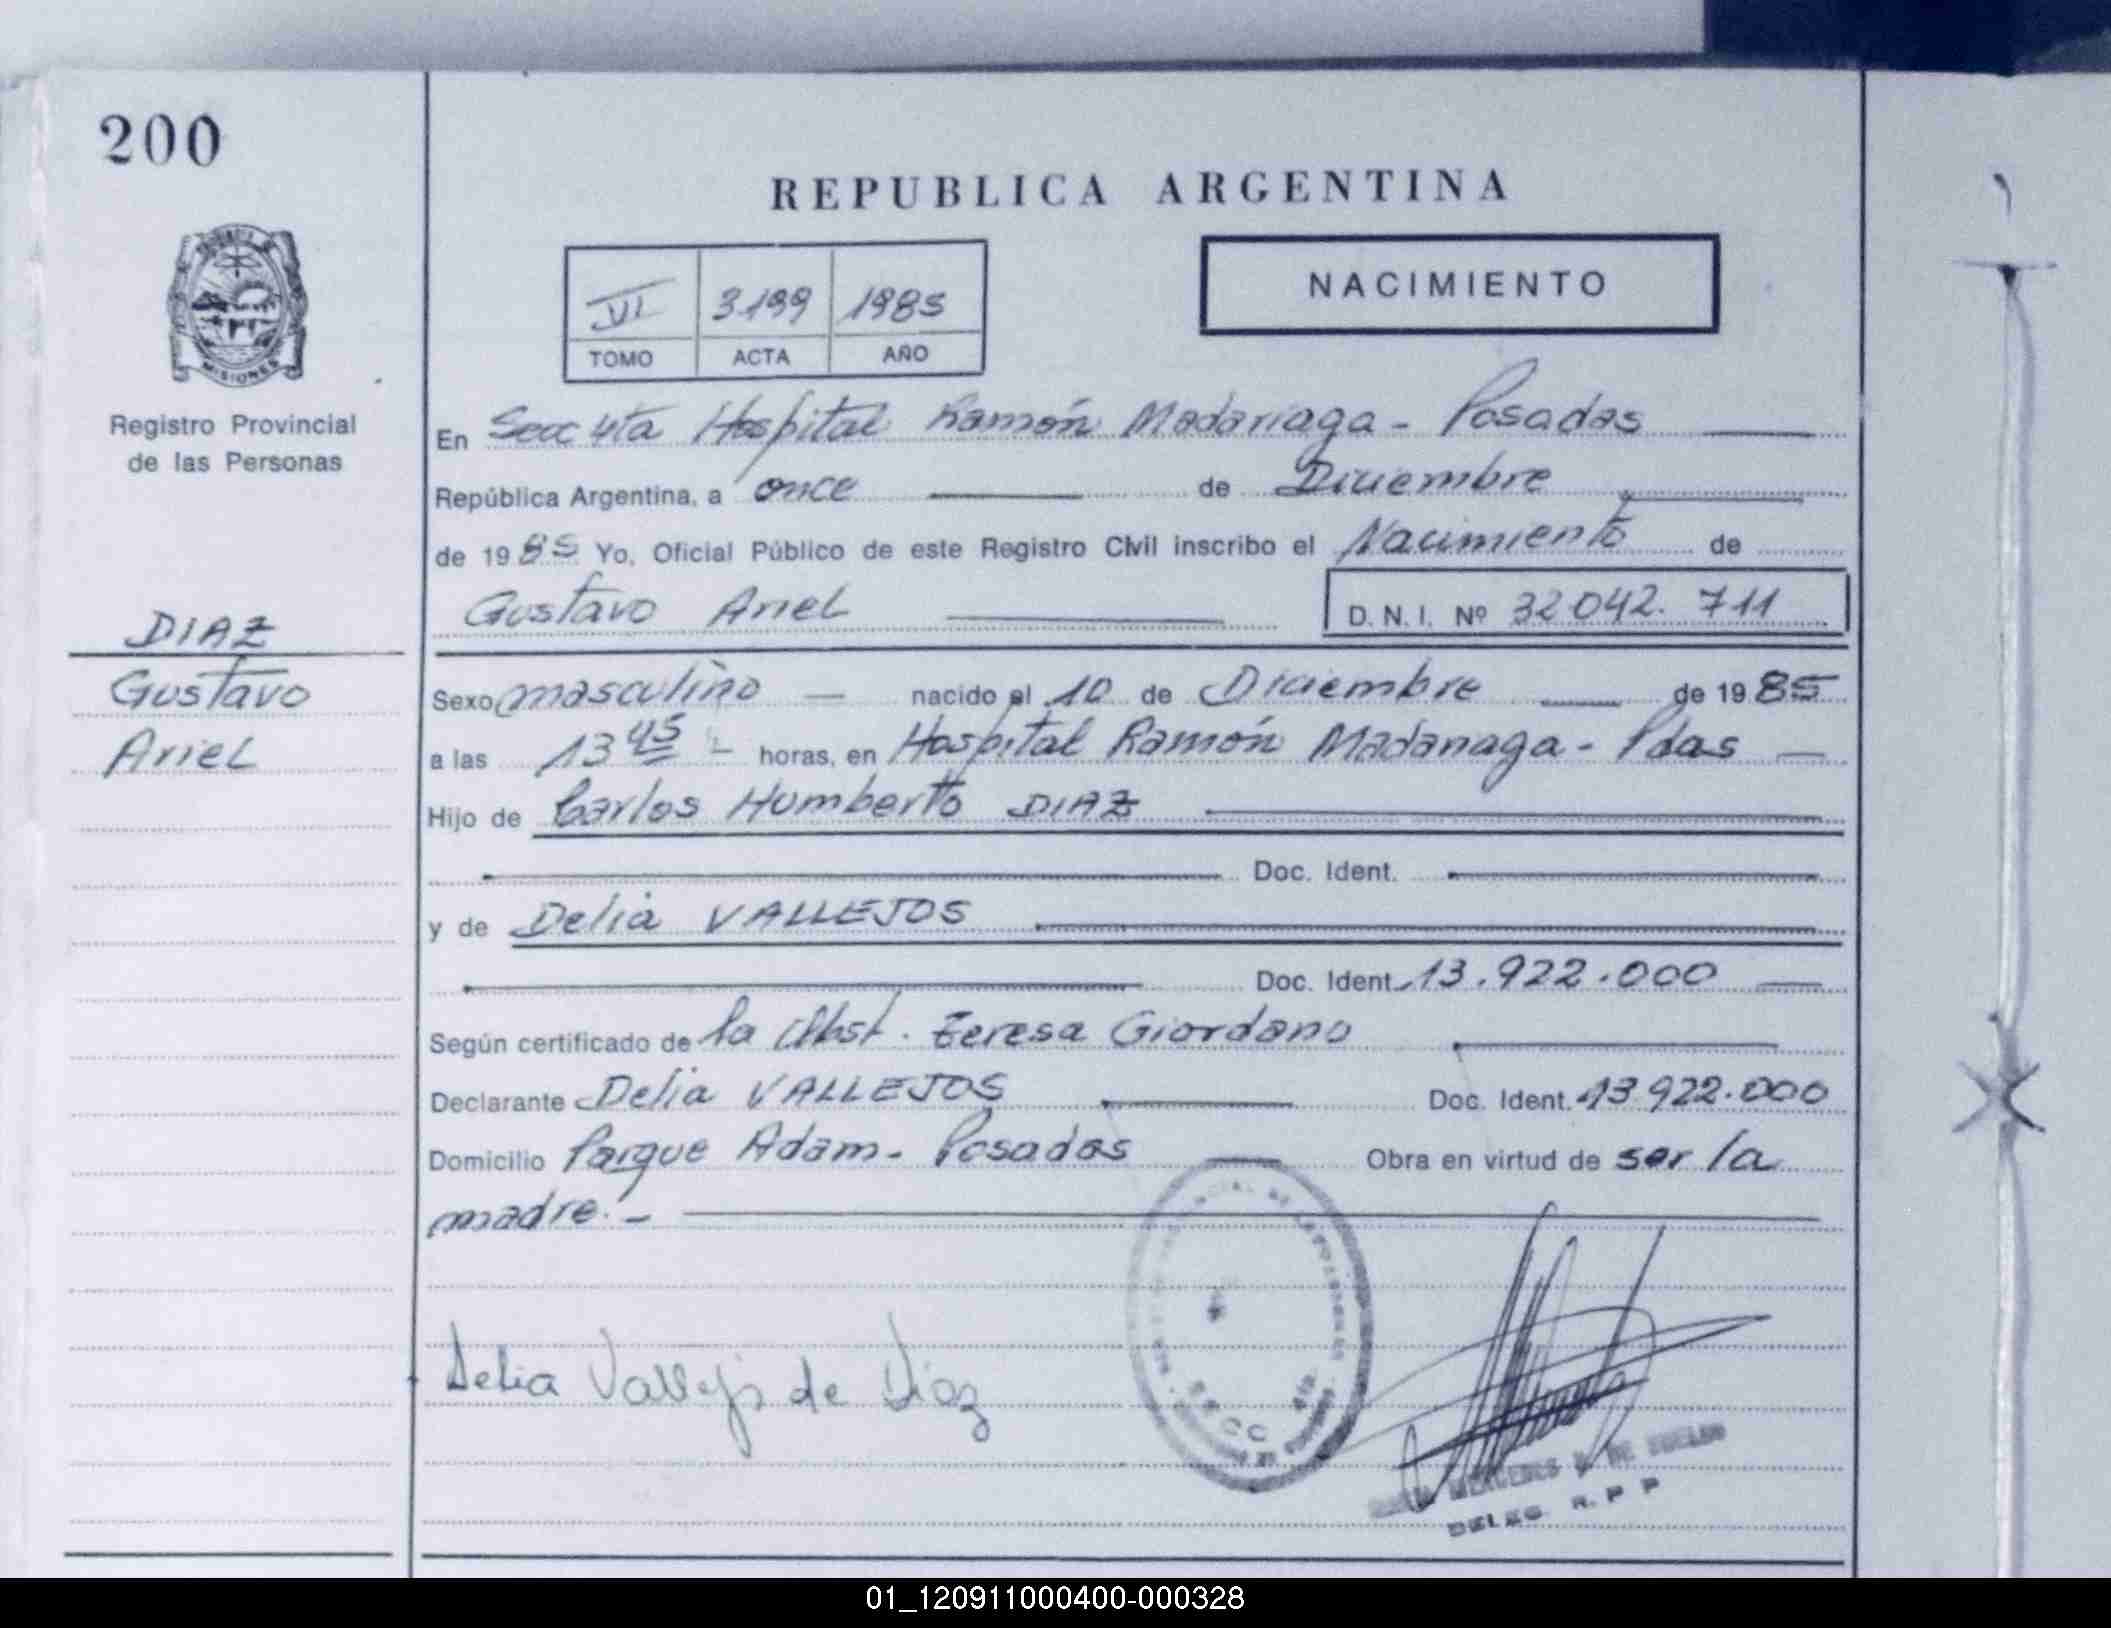 200
REPUBLICA ARGENTINA
NACIMIENTO
VI 3199 1985
TOMO ACTA AÑO
MISIONES
Registro Provincial
de las Personas
DIAZ
Gustavo
Ariel
En Secc 4ta Hospital Ramón Madariaga - Posadas
República Argentina, a once de Diciembre
de 1985 Yo, Oficial Público de este Registro Civil inscribo el Nacimiento de
Gustavo Ariel D.N.I. Nº 32042.711
Sexo masculino nacido el 10 de Diciembre de 1985
a las 13 45 horas, en Hospital Ramón Madariaga - Pdas
Hijo de Carlos Humberto DIAZ
Doc. Ident.
y de Delia VALLEJOS
Doc. Ident. 13.922.000
Según certificado de la Obst. Teresa Giordano
Declarante Delia VALLEJOS Doc. Ident. 13.922.000
Domicilio Parque Adam - Posadas Obra en virtud de ser la
madre. -
Delia Vallejos de Diaz
SECC 4ta.
MERCEDES DE
DELEG. R. P. P
01_120911000400-000328